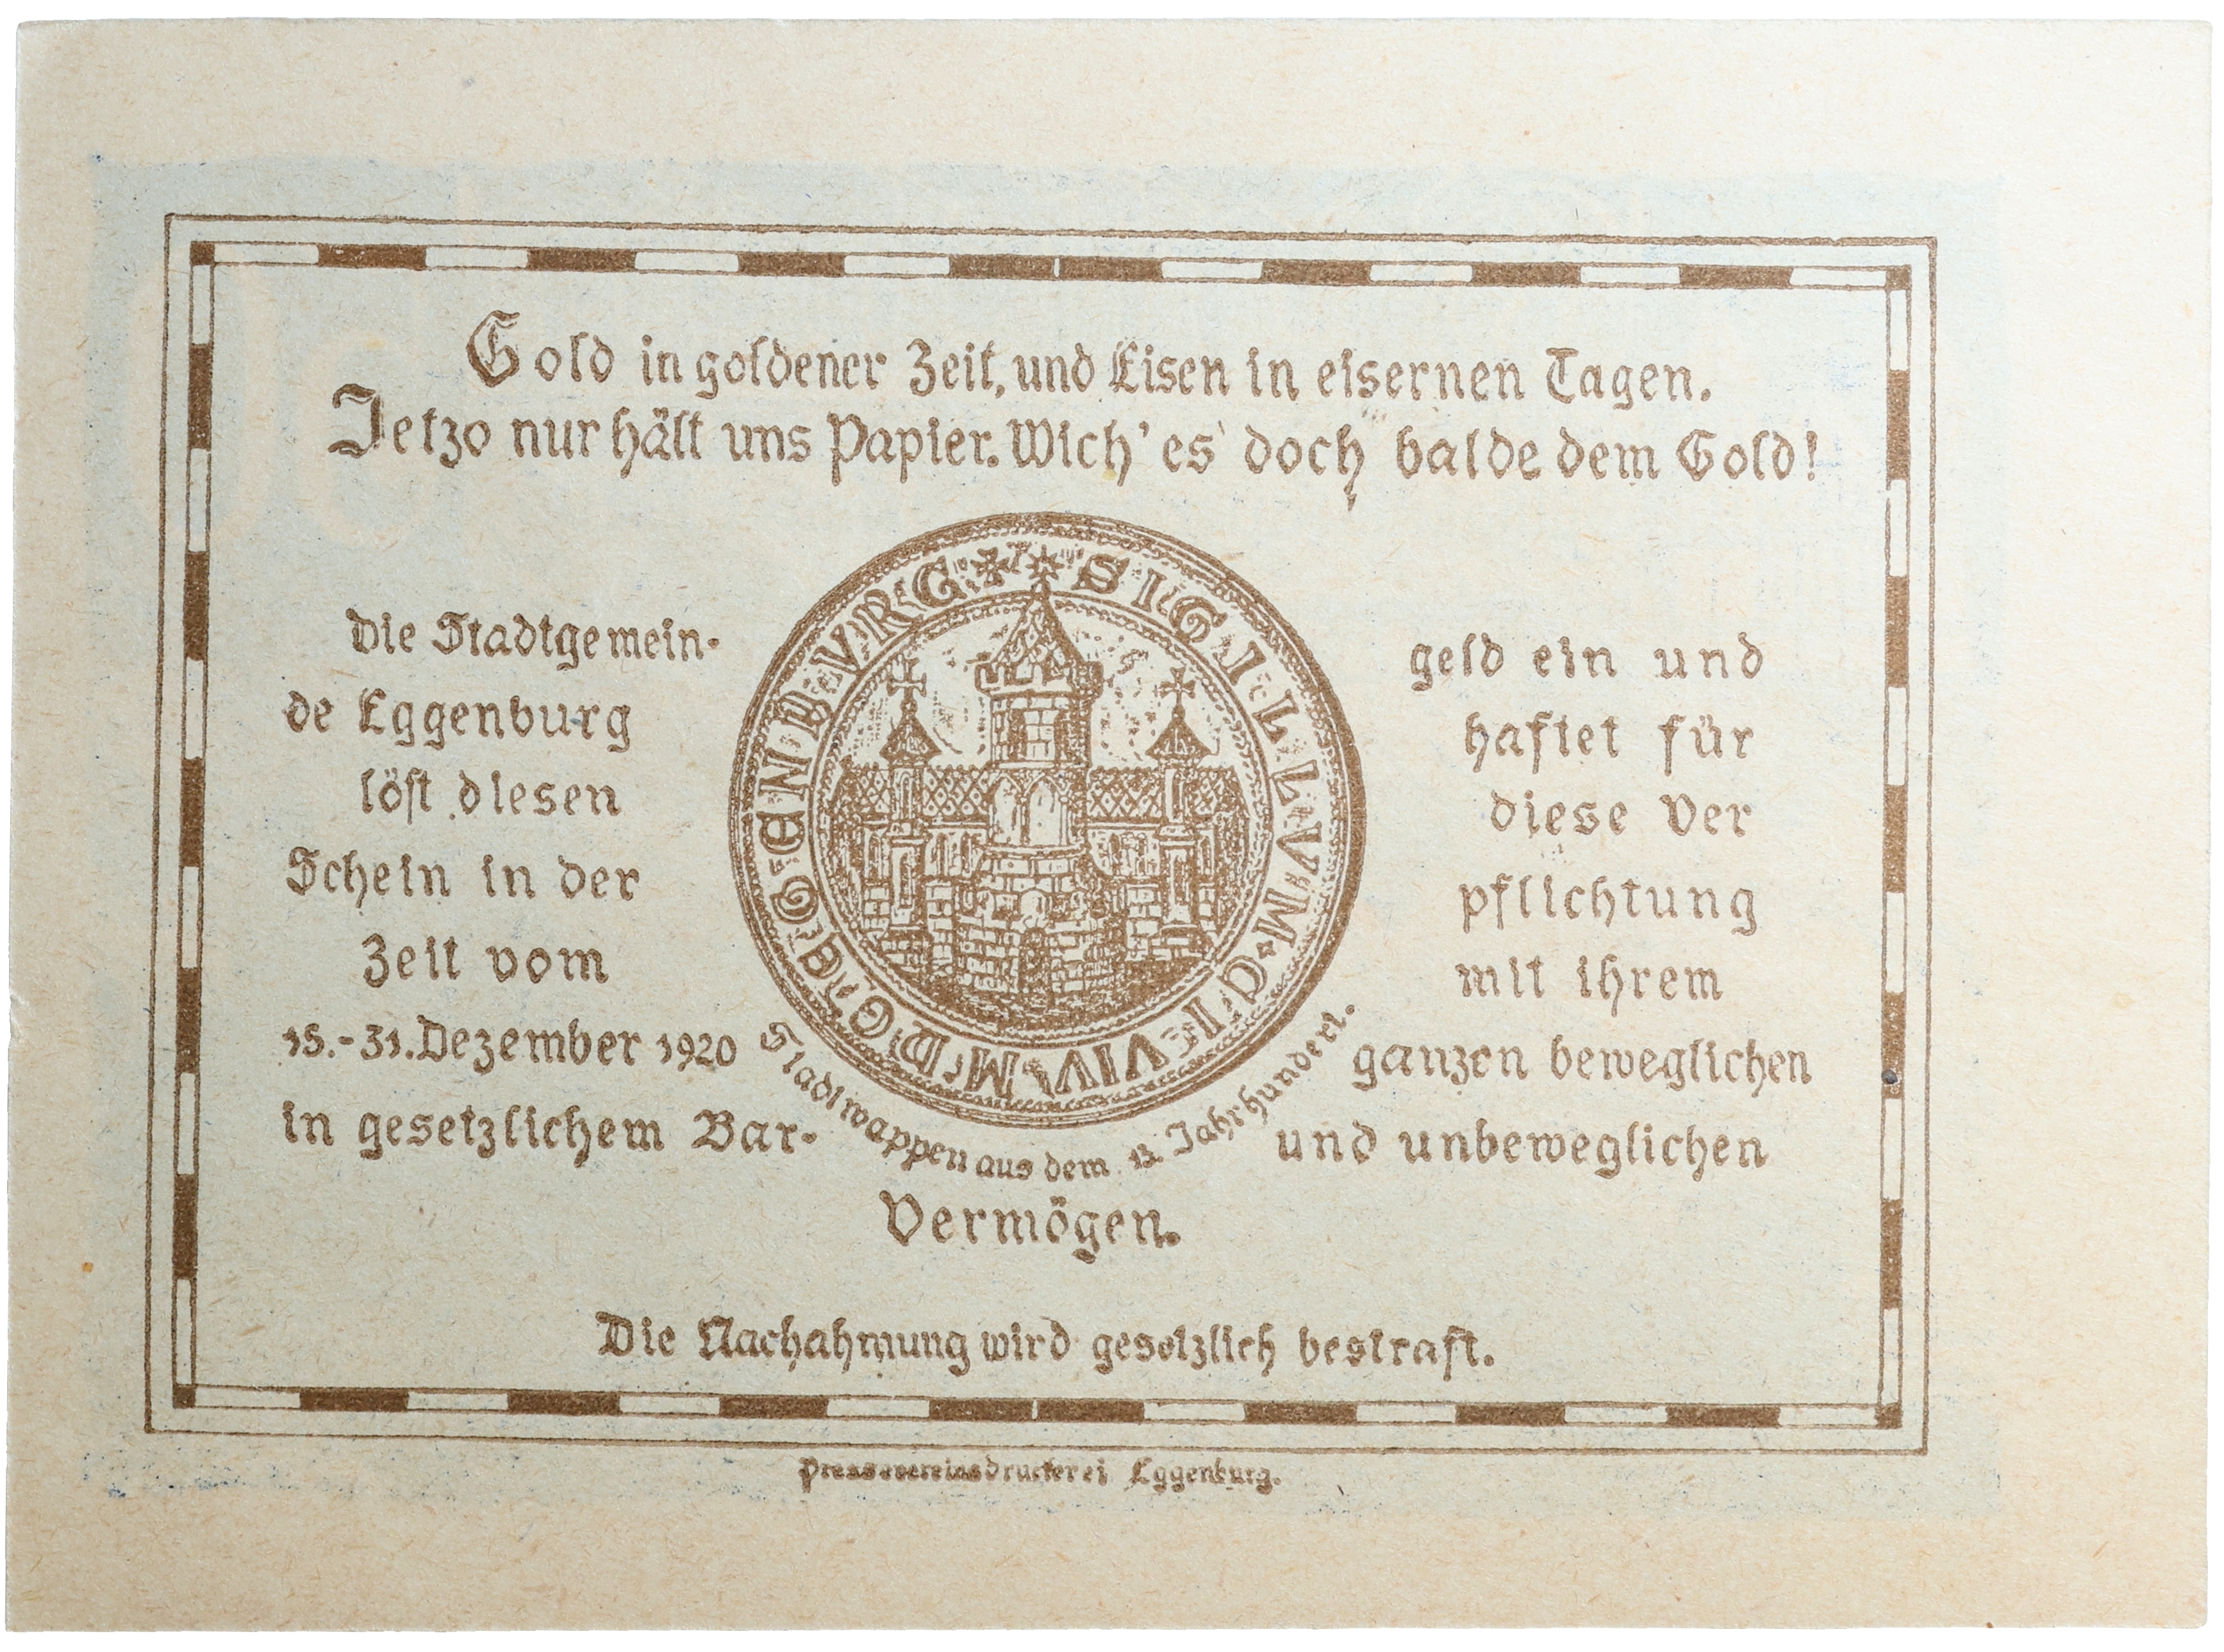 Gold in goldener Zeit, und Eisen in eisernen Tagen.
Jetzo nur hält uns Papier. Wich' es doch balde dem Gold!
Die Stadtgemein-
de Eggenburg
löst diesen
Schein in der
Zeit vom
15.-31. Dezember 1920
in gesetzlichem Bar-
geld ein und
haftet für
diese Ver
pflichtung
mit ihrem
ganzen beweglichen
und unbeweglichen
Vermögen.
SIGILLVM·CIVIVM·D
EGENBVRG
Stadtwappen aus dem 13. Jahrhundert.
Die Nachahmung wird gesetzlich bestraft.
Pressvereinsdruckerei Eggenburg.